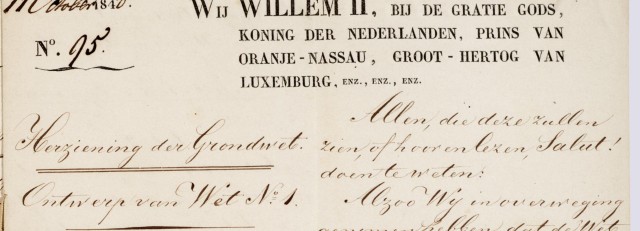 October 1848.
N.° 95.
Herziening der Grondwet.
Ontwerp van Wet N.° 1.
WIJ WILLEM II, BIJ DE GRATIE GODS,
KONING DER NEDERLANDEN, PRINS VAN
ORANJE-NASSAU, GROOT-HERTOG VAN
LUXEMBURG, ENZ., ENZ., ENZ.
Allen, die deze zullen
zien, of hooren lezen, Salut!
doen te weten:
Alzoo Wij in overweging
genomen hebben, dat de Wet